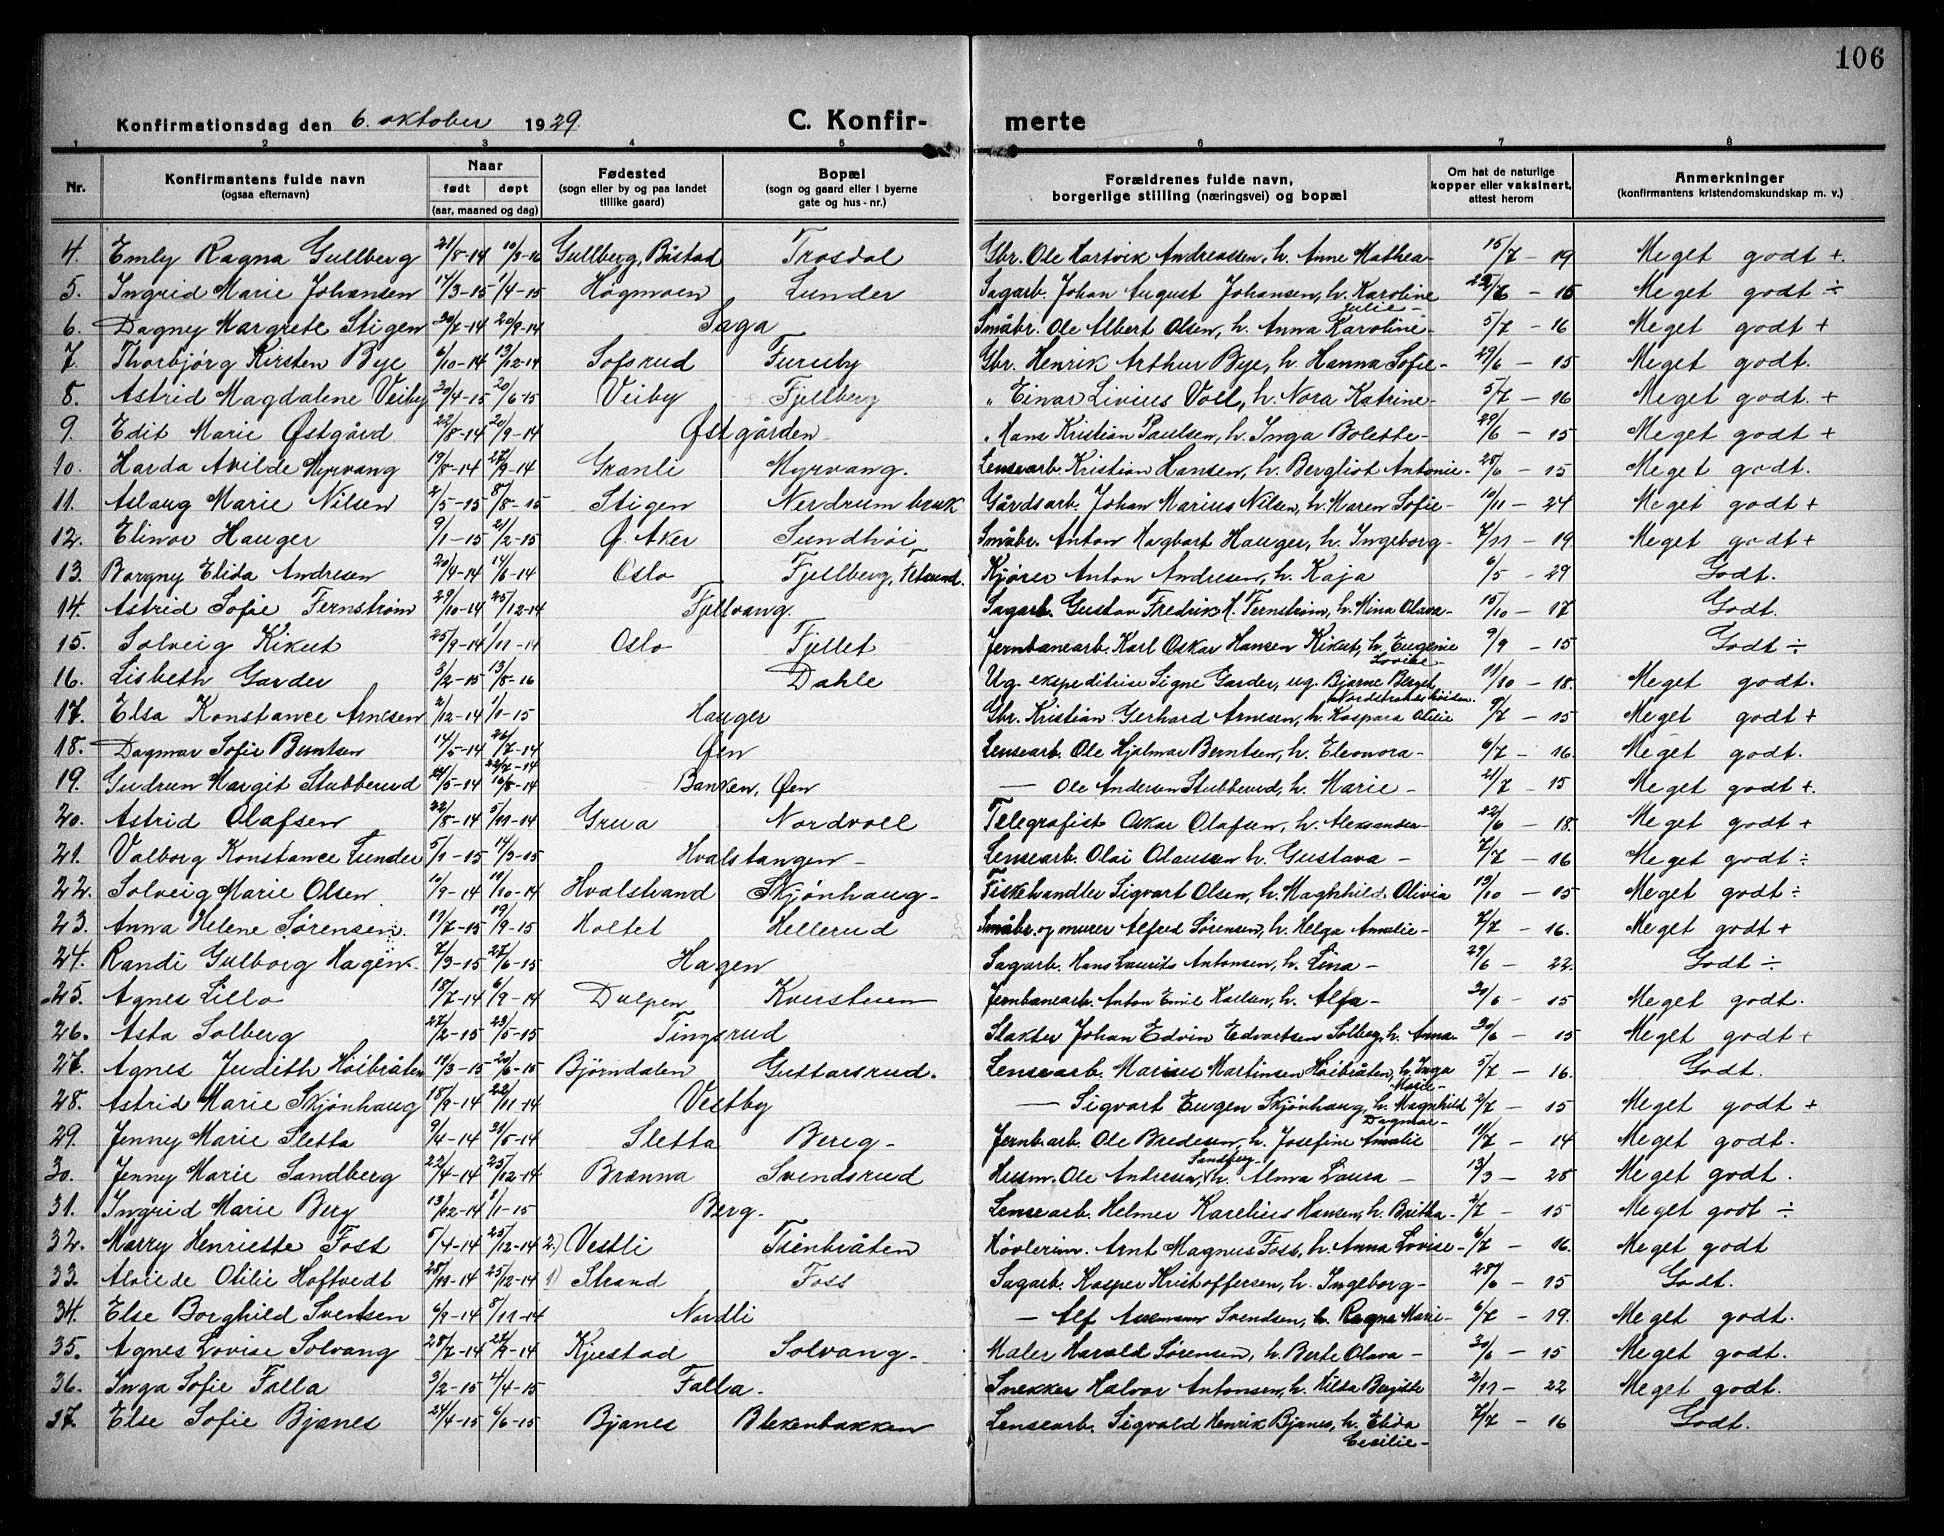 106
Konfirmationsdag den 6. oktober 1929. C. Konfirmerte
1 2 3 4 5 6 7 8
Nr. Konfirmantens fulde navn (ogsaa efternavn) Naar født døpt (aar, maaned og dag) Fødested (sogn eller by og paa landet tillike gaard) Bopæl (sogn og gaard eller i byerne gate og hus-nr.) Forældrenes fulde navn, borgerlige stilling (næringsvei) og bopæl Om hat de naturlige kopper eller vaksinert, attest herom Anmerkninger (konfirmantens kristendomskundskap m. v.)
4. Emly Ragna Gullberg 21/8-14 10/3-16 Gullberg, Båstad Trosdal Gbr. Ole Hartvik Andreassen, h. Anne Mathea- 15/7 - 19 Meget godt +.
5. Ingrid Marie Johansen 17/3-15 1/4-15 Høgmoen Lunder Sagarb. Johan August Johansen, h. Karoline Julie- 29/6 - 15 Meget godt ÷
6. Dagny Margrete Stigen 20/7-14 20/9-14 Saga Småbr. Ole Albert Olsen, h. Anna Karoline- 5/7 - 16 Meget godt +
7. Thorbjørg Kirsten Bye 6/10-14 13/12-14 Sofsrud Furuby Gbr. Henrik Arthur Bye, h. Hanna Sofie- 29/6 - 15 Meget godt.
8. Astrid Magdalene Veiby 30/4-15 20/6-15 Veiby Fjellberg " Einar Livius Voll, h. Nora Katrine- 5/7 - 16 Meget godt. +
9. Edit Marie Østgård 22/8-14 20/9-14 Østgården " Hans Kristian Paulsen, h. Inga Bolette- 29/6 - 15 Meget godt +
10. Harda Avilde Myrvang 19/8-14 27/9-14 Granli Myrvang. Lensearb. Kristian Hansen, h. Bergliot Antonie- 25/6 - 15 Meget godt.
11. Aslaug Marie Nilsen 2/5-15 8/8-15 Stigen Nerdrum bruk Gårdsarb. Johan Marius Nilsen, h. Maren Sofie- 10/11 - 24 Meget godt +
12. Elinor Hauger 9/1-15 21/2-15 Ø. Aker Sundhøi Småbr. Anton Hagbart Hauger, h. Ingeborg- 7/11 - 19. Meget godt +
13. Borgny Elida Andresen 20/4-14 14/6-14 Oslo Fjellberg, Fetsund. Kjører Anton Andresen, h. Kaja 6/5 - 29 Godt.
14. Astrid Sofie Fernstrøm 29/10-14 25/12-14 Fjellvang. Sagarb. Gustav Fredrik H. Fernstrøm, h. Mina Olava- 15/10 - 17 Godt.
15. Solveig Kikut 25/9-14 1/11-14 Oslo Fjellet Jernbanearb. Karl Oskar Hansen Kikut, h. Eugenie Lovise- 9/9 - 15 Godt ÷
16. Lisbeth Garder 3/2-15 13/8-16 Dahle Ug. ekspeditrise Signe Garder, ug. Bjarne Berget, 11/10 - 18. Meget godt.
17. Elsa Konstance Arnesen 2/12-14 1/1-15 Hauger Gbr. Kristian Gerhard Arnesen, h. Kaspara Otilie 9/7 - 15 Meget godt +
18. Dagmar Sofie Berntsen 14/5-14 26/7-14 Øen Lensearb. Ole Hjalmar Berntsen, h. Eleonora- 6/7 - 16. Meget godt.
19. Gudrun Margit Stubberud 24/5-14 22/7-14 16/8-14 Banken, Øen — Ole Andersen Stubberud, h. Marie - 21/7 - 15 Meget godt +.
20. Astrid Olafsen 22/8-14 5/11-14 Grua Nordvoll Telegrafist Oskar Olafsen, h. Aleksandra- 22/6 - 18. Meget godt +
21. Valborg Konstance Lunder 5/1-15 14/3-15 Hvalstangen - Lensearb. Olai Olaussen h. Gustava - 7/7 - 16 Meget godt ÷
22. Solveig Marie Olsen. 10/9-14 10/10-14 Hvalstrand Skjønhaug- Fiskehandler Sigvart Olsen, h. Maghhild Olivia 13/10 - 15 Meget godt ÷
23. Anna Helene Sørensen. 17/7-15 19/9-15 Holtet Hellerud Småbr. og murer Alfred Sørensen, h. Helga Amalie- 7/7 - 16. Meget godt +
24. Randi Gulborg Hagen. 7/3-15 27/6-15 Hagen Sagarb. Hans Laurits Antonsen, h. Lina - 29/6 - 22. Godt ÷
25. Agnes Lillo 18/7-14 6/9-14 Dalpen Kverstuen Jernbanearb. Anton Emil Karlsen, h. Alfa - 30/6 - 15 Meget godt.
26. Asta Solberg 27/2-15 23/5-15 Tingsrud Slakter Johan Edvin Edvartsen Solberg, h. Anna- 30/6 - 15 Meget godt +
27. Agnes Judith Høibråten 19/3-15 20/6-15 Bjørndalen Guttarsrud. Lensearb. Marius Martinsen Høibråten, h. Inga Marie- 5/7 - 16. Godt.
28. Astrid Marie Skjønhaug 18/9-14 22/11-14 Vestby — Sigvart Eugen Skjønhaug, h. Magnhild Dagmar- 2/7 - 15 Meget godt +
29. Jenny Marie Sletta 9/4-14 31/5-14 Sletta Bereg- Jernb.arb. Ole Bredesen, h. Josefine Amalie 11/7 - 14 Meget godt.
30. Jenny Marie Sandberg 22/4-14 25/12-14 Brænna Svendsrud Husm. Ole Andresen Sandberg, h. Alma Laura - 13/3 - 28 Meget godt.
31. Ingrid Marie Berg 13/12-14 1/1-15 Berg. Lensearb. Helmer Karelius Hansen, h. Britha- 2/7 - 15 Meget godt ÷
32. Marry Henriette Foss 5/4-14 25/12-14 2.) Vestli Stenbråten Høvlerim. Arnt Magnus Foss, h. Anna Lovise- 6/7 - 16. Meget godt
33. Alvilde Otilie Hoftvedt 28/11-14 25/12-14 1) Strand Foss Sagarb. Kasper Kristoffersen, h. Ingeborg- 28/6 - 15 Godt.
34. Else Borghild Svendsen 6/9-14 8/11-14 Nordli — Alf Svendsen, h. Ragna Marie- 6/7 - 19. Meget godt.
35. Agnes Lovise Solvang 28/7-14 27/9-14 Kjestad Solvang- Maler Harald Sørensen, h. Berte Olava - 30/6 - 15 Meget godt.
36. Inga Sofie Falla 3/2-15 4/4-15 Falla. Snekker Halvor Antonsen, h. Hilda Bergitte 2/11 - 22 Meget godt.
37. Else Sofie Bjanes 24/4-15 6/6-15 Bjanes Blekenbakken Lensearb. Sigvald Henrik Bjanes, h. Elida Cecilie- 7/7 - 16 Godt.